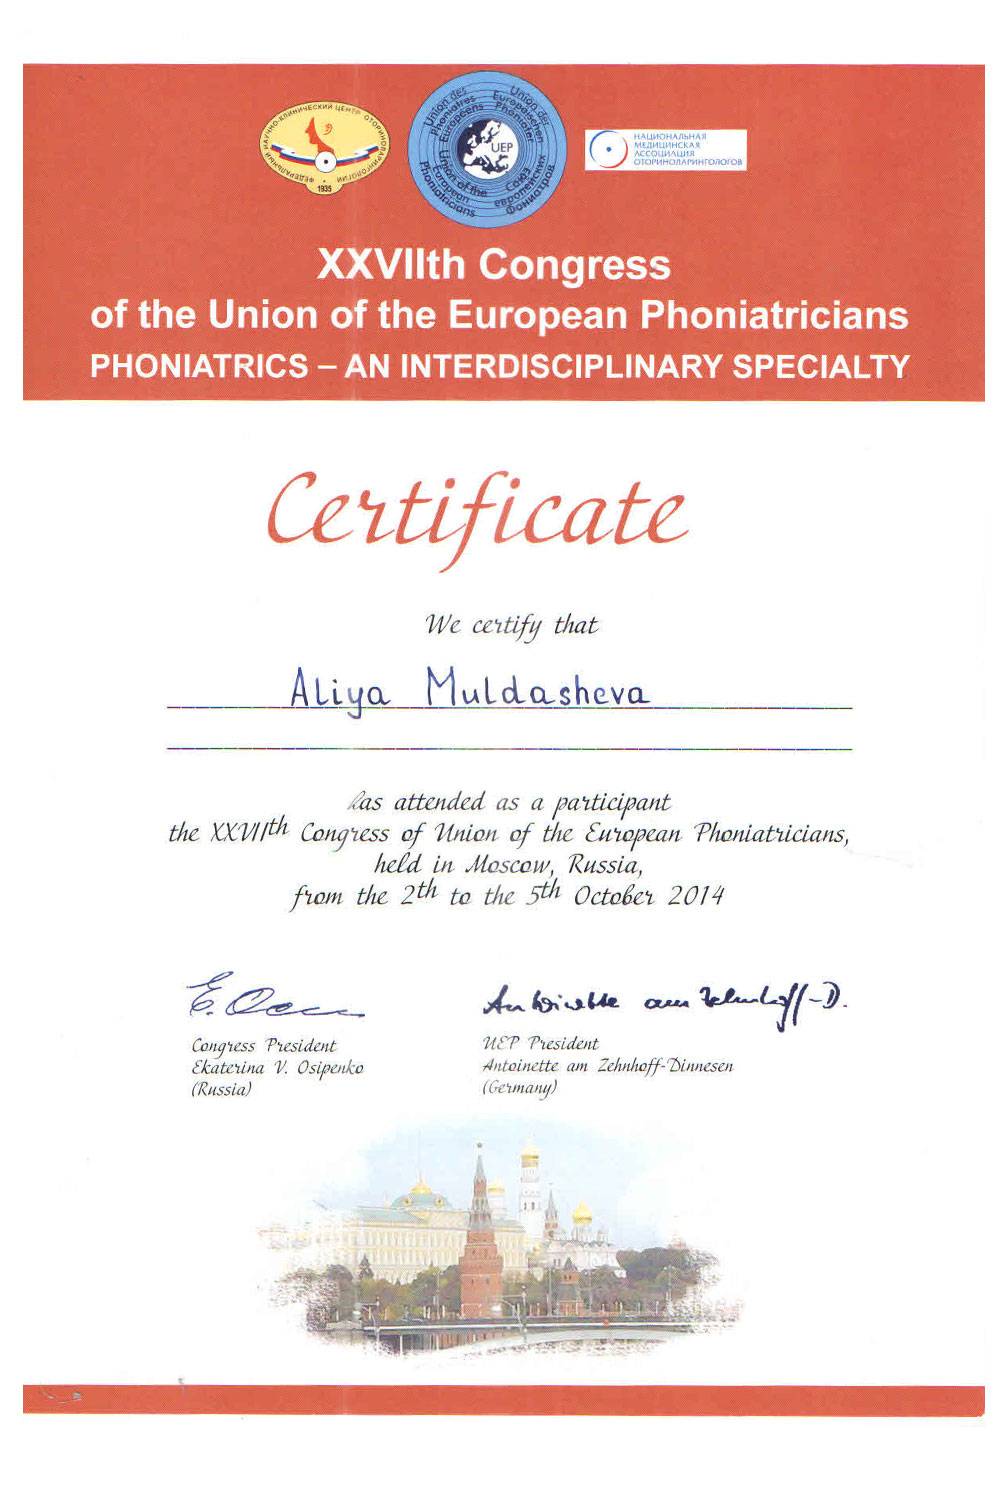 ФЕДЕРАЛЬНЫЙ НАУЧНО-КЛИНИЧЕСКИЙ ЦЕНТР ОТОРИНОЛАРИНГОЛОГИИ
1935
Union des
Phoniatres
Européens
Union der
Europäischen
Phoniater
UEP
Union of the
European
Phoniatricians
Союз
европейских
Фониатров
НАЦИОНАЛЬНАЯ
МЕДИЦИНСКАЯ
АССОЦИАЦИЯ
ОТОРИНОЛАРИНГОЛОГОВ
XXVIIth Congress
of the Union of the European Phoniatricians
PHONIATRICS – AN INTERDISCIPLINARY SPECIALTY
Certificate
We certify that
Aliya Muldasheva
has attended as a participant
the XXVIIth Congress of Union of the European Phoniatricians,
held in Moscow, Russia,
from the 2th to the 5th October 2014
Antoinette am Zehnhoff-D.
Congress President
Ekaterina V. Osipenko
(Russia)
UEP President
Antoinette am Zehnhoff-Dinnesen
(Germany)